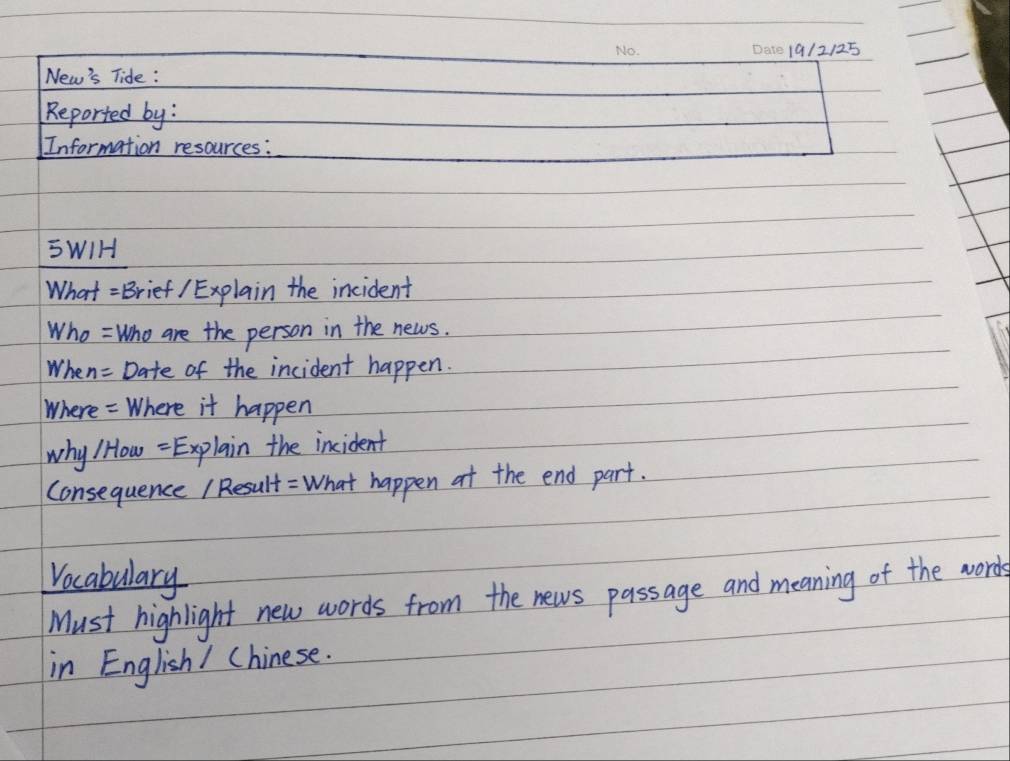 No. Date 19/2/25
New's Tide :
Reported by:
Information resources:
5W1H
What = Brief / Explain the incident
Who = Who are the person in the news.
When = Date of the incident happen.
Where = Where it happen
why / How = Explain the incident
Consequence / Result = What happen at the end part.
Vocabulary
Must highlight new words from the news passage and meaning of the words
in English / Chinese.